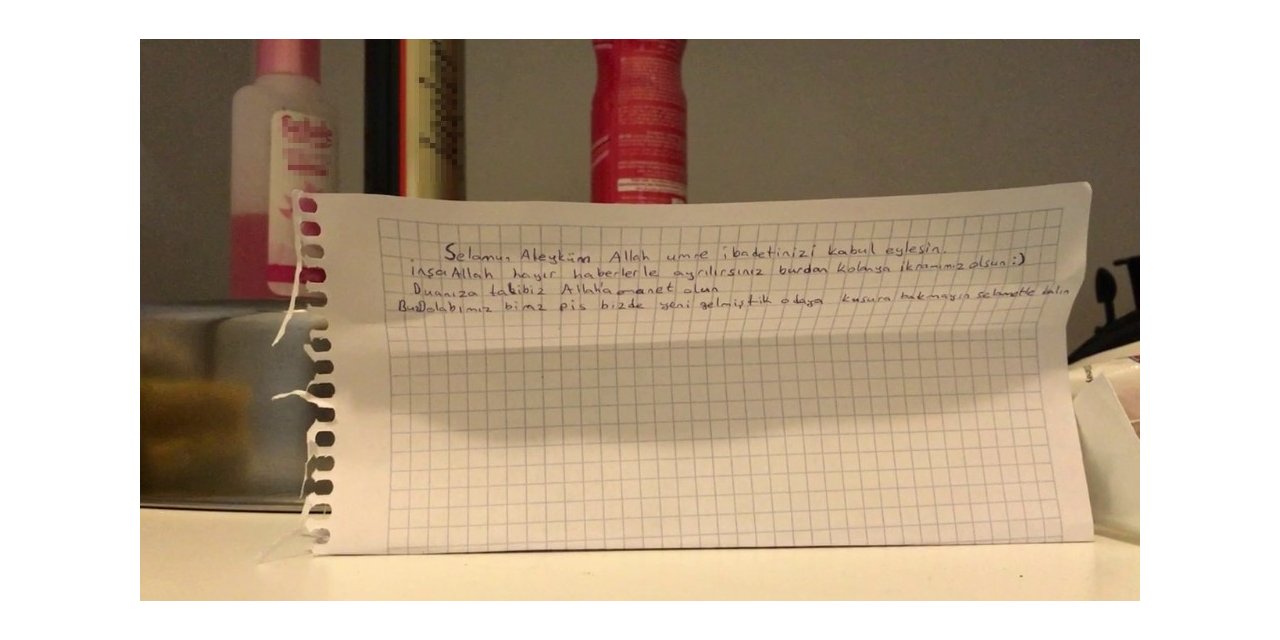 Selamun Aleyküm Allah umre ibadetinizi kabul eylesin.
inşaAllah hayır haberlerle ayrılırsınız burdan kolonya ikramımız olsun :)
Duanıza talibiz Allaha emanet olun
BuzDolabımız biraz pis bizde yeni gelmiştik odaya kusura bakmayın selametle kalın